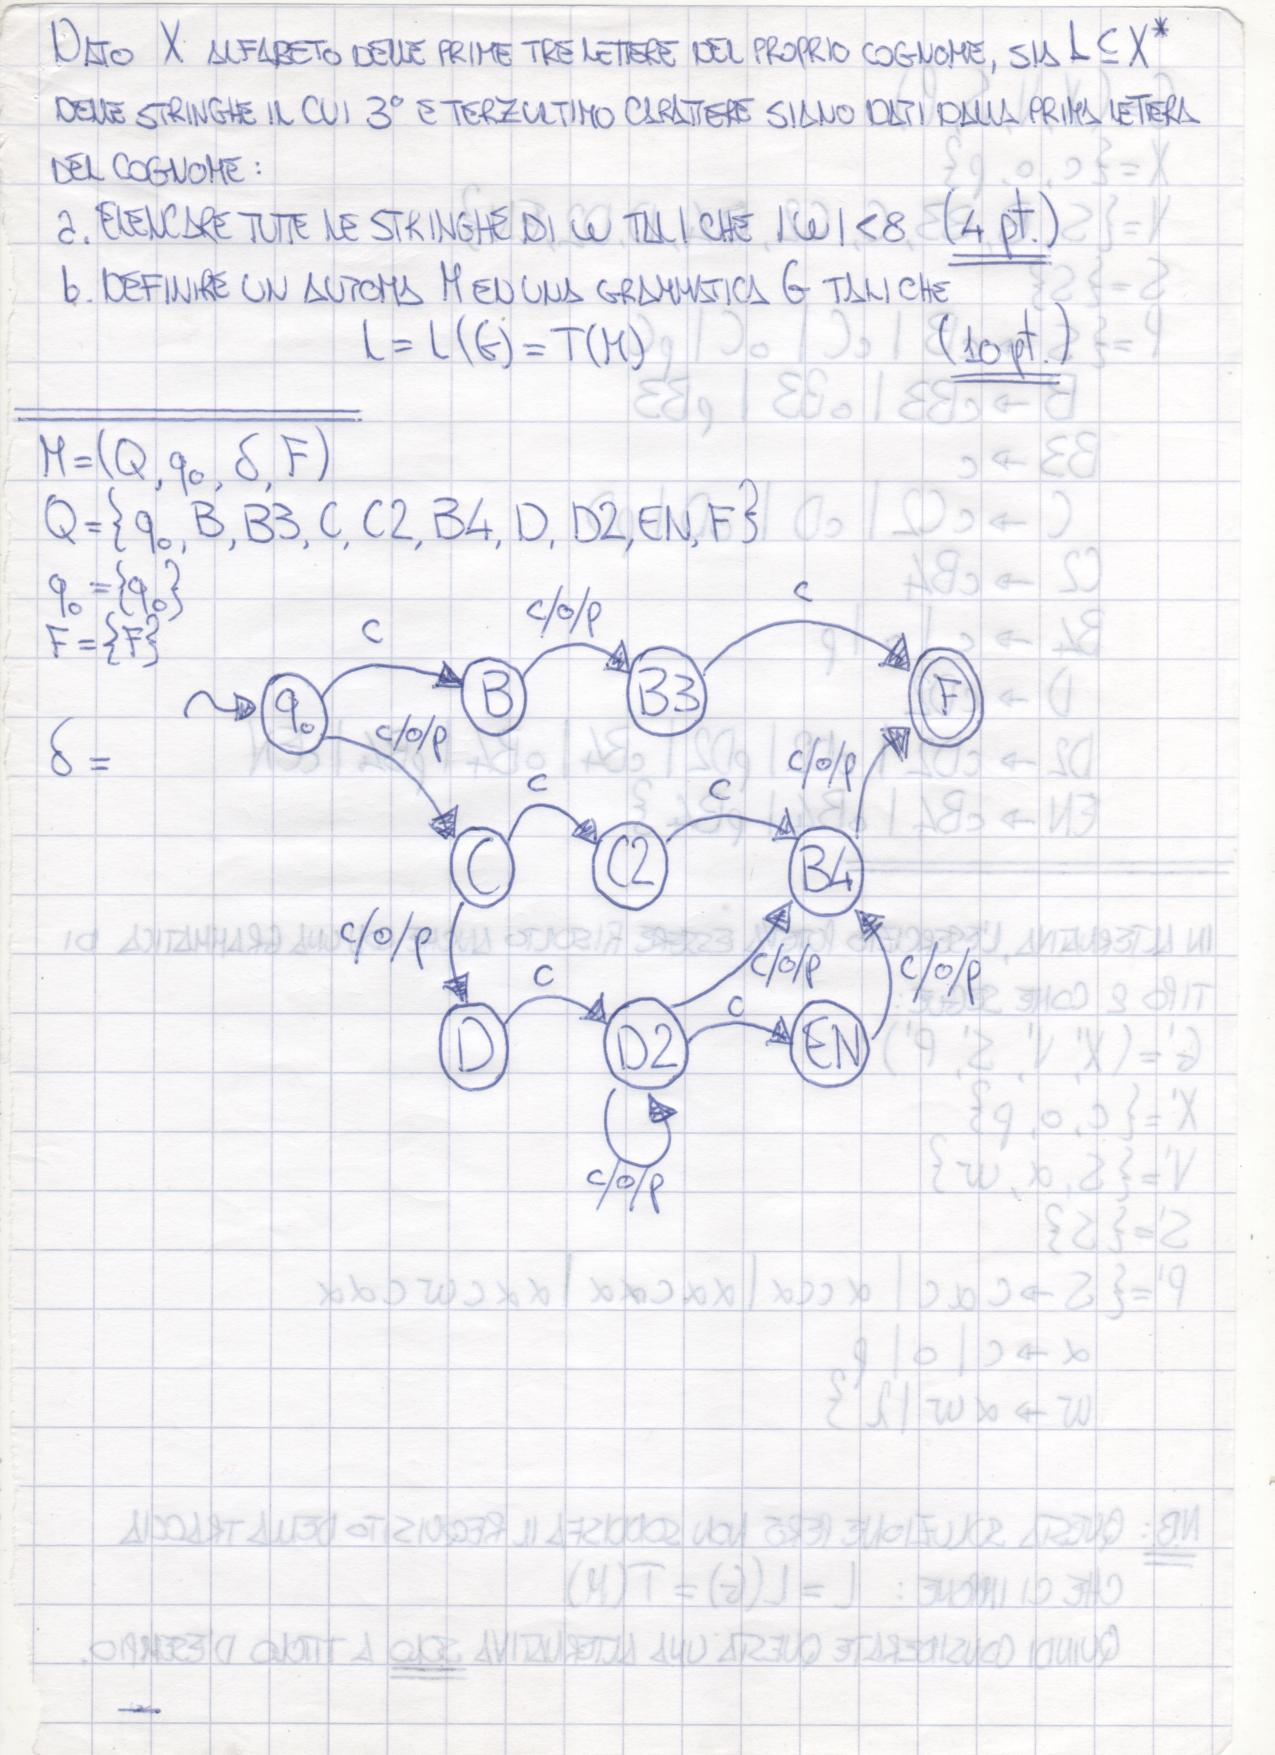 DATO X ALFABETO DELLE PRIME TRE LETTERE DEL PROPRIO COGNOME, SIA L ⊆ X*
DELLE STRINGHE IN CUI 3° E TERZULTIMO CARATTERE SIANO DATI DALLA PRIMA LETTERA
DEL COGNOME:
a. ELENCARE TUTTE LE STRINGHE DI ω TALI CHE |ω| < 8 (4 pt.)
b. DEFINIRE UN AUTOMA M ED UNA GRAMMATICA G TALI CHE
L = L(G) = T(M) (10 pt.)
M = (Q, q₀, δ, F)
Q = {q₀, B, B3, C, C2, B4, D, D2, EN, F}
q₀ = {q₀}
F = {F}
δ =
c c/o/p c
q₀ B B3 F
c/o/p c c c/o/p
C C2 B4
c/o/p c c/o/p c c/o/p
D D2 EN
c/o/p